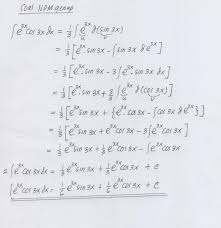 ∫e^{3x} cos 3x dx = 1/3 ∫ e^{3x} d(sin 3x)
u v
= 1/3 [e^{3x} sin 3x - ∫ sin 3x d e^{3x}]
= 1/3 [e^{3x} sin 3x - 3 ∫ e^{3x} sin 3x dx]
= 1/3 [e^{3x} sin 3x + ∫ e^{3x} d(cos 3x)]
u v
= 1/3 [e^{3x} sin 3x + {e^{3x} cos 3x - ∫ cos 3x d e^{3x}}]
= 1/3 [e^{3x} sin 3x + e^{3x} cos 3x - 3 ∫ e^{3x} cos 3x]
= 1/3 e^{3x} sin 3x + 1/3 e^{3x} cos 3x - ∫ e^{3x} cos 3x
2 ∫ e^{3x} cos 3x dx = 1/3 e^{3x} sin 3x + 1/3 e^{3x} cos 3x + c
∫ e^{3x} cos 3x dx = 1/6 e^{3x} sin 3x + 1/6 e^{3x} cos 3x + c